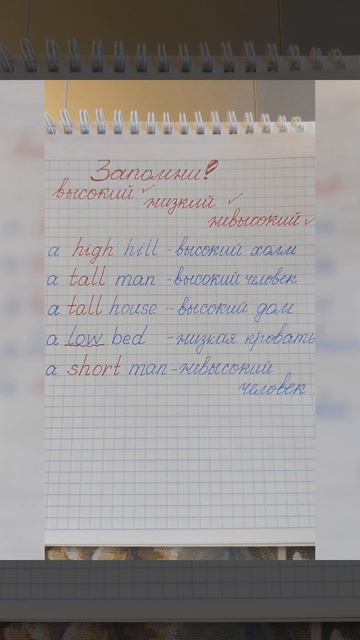 Запомни!
высокий ✓
низкий ✓
невысокий ✓
a high hill - высокий холм
a tall man - высокий человек
a tall house - высокий дом
a low bed - низкая кровать
a short man - невысокий
человек